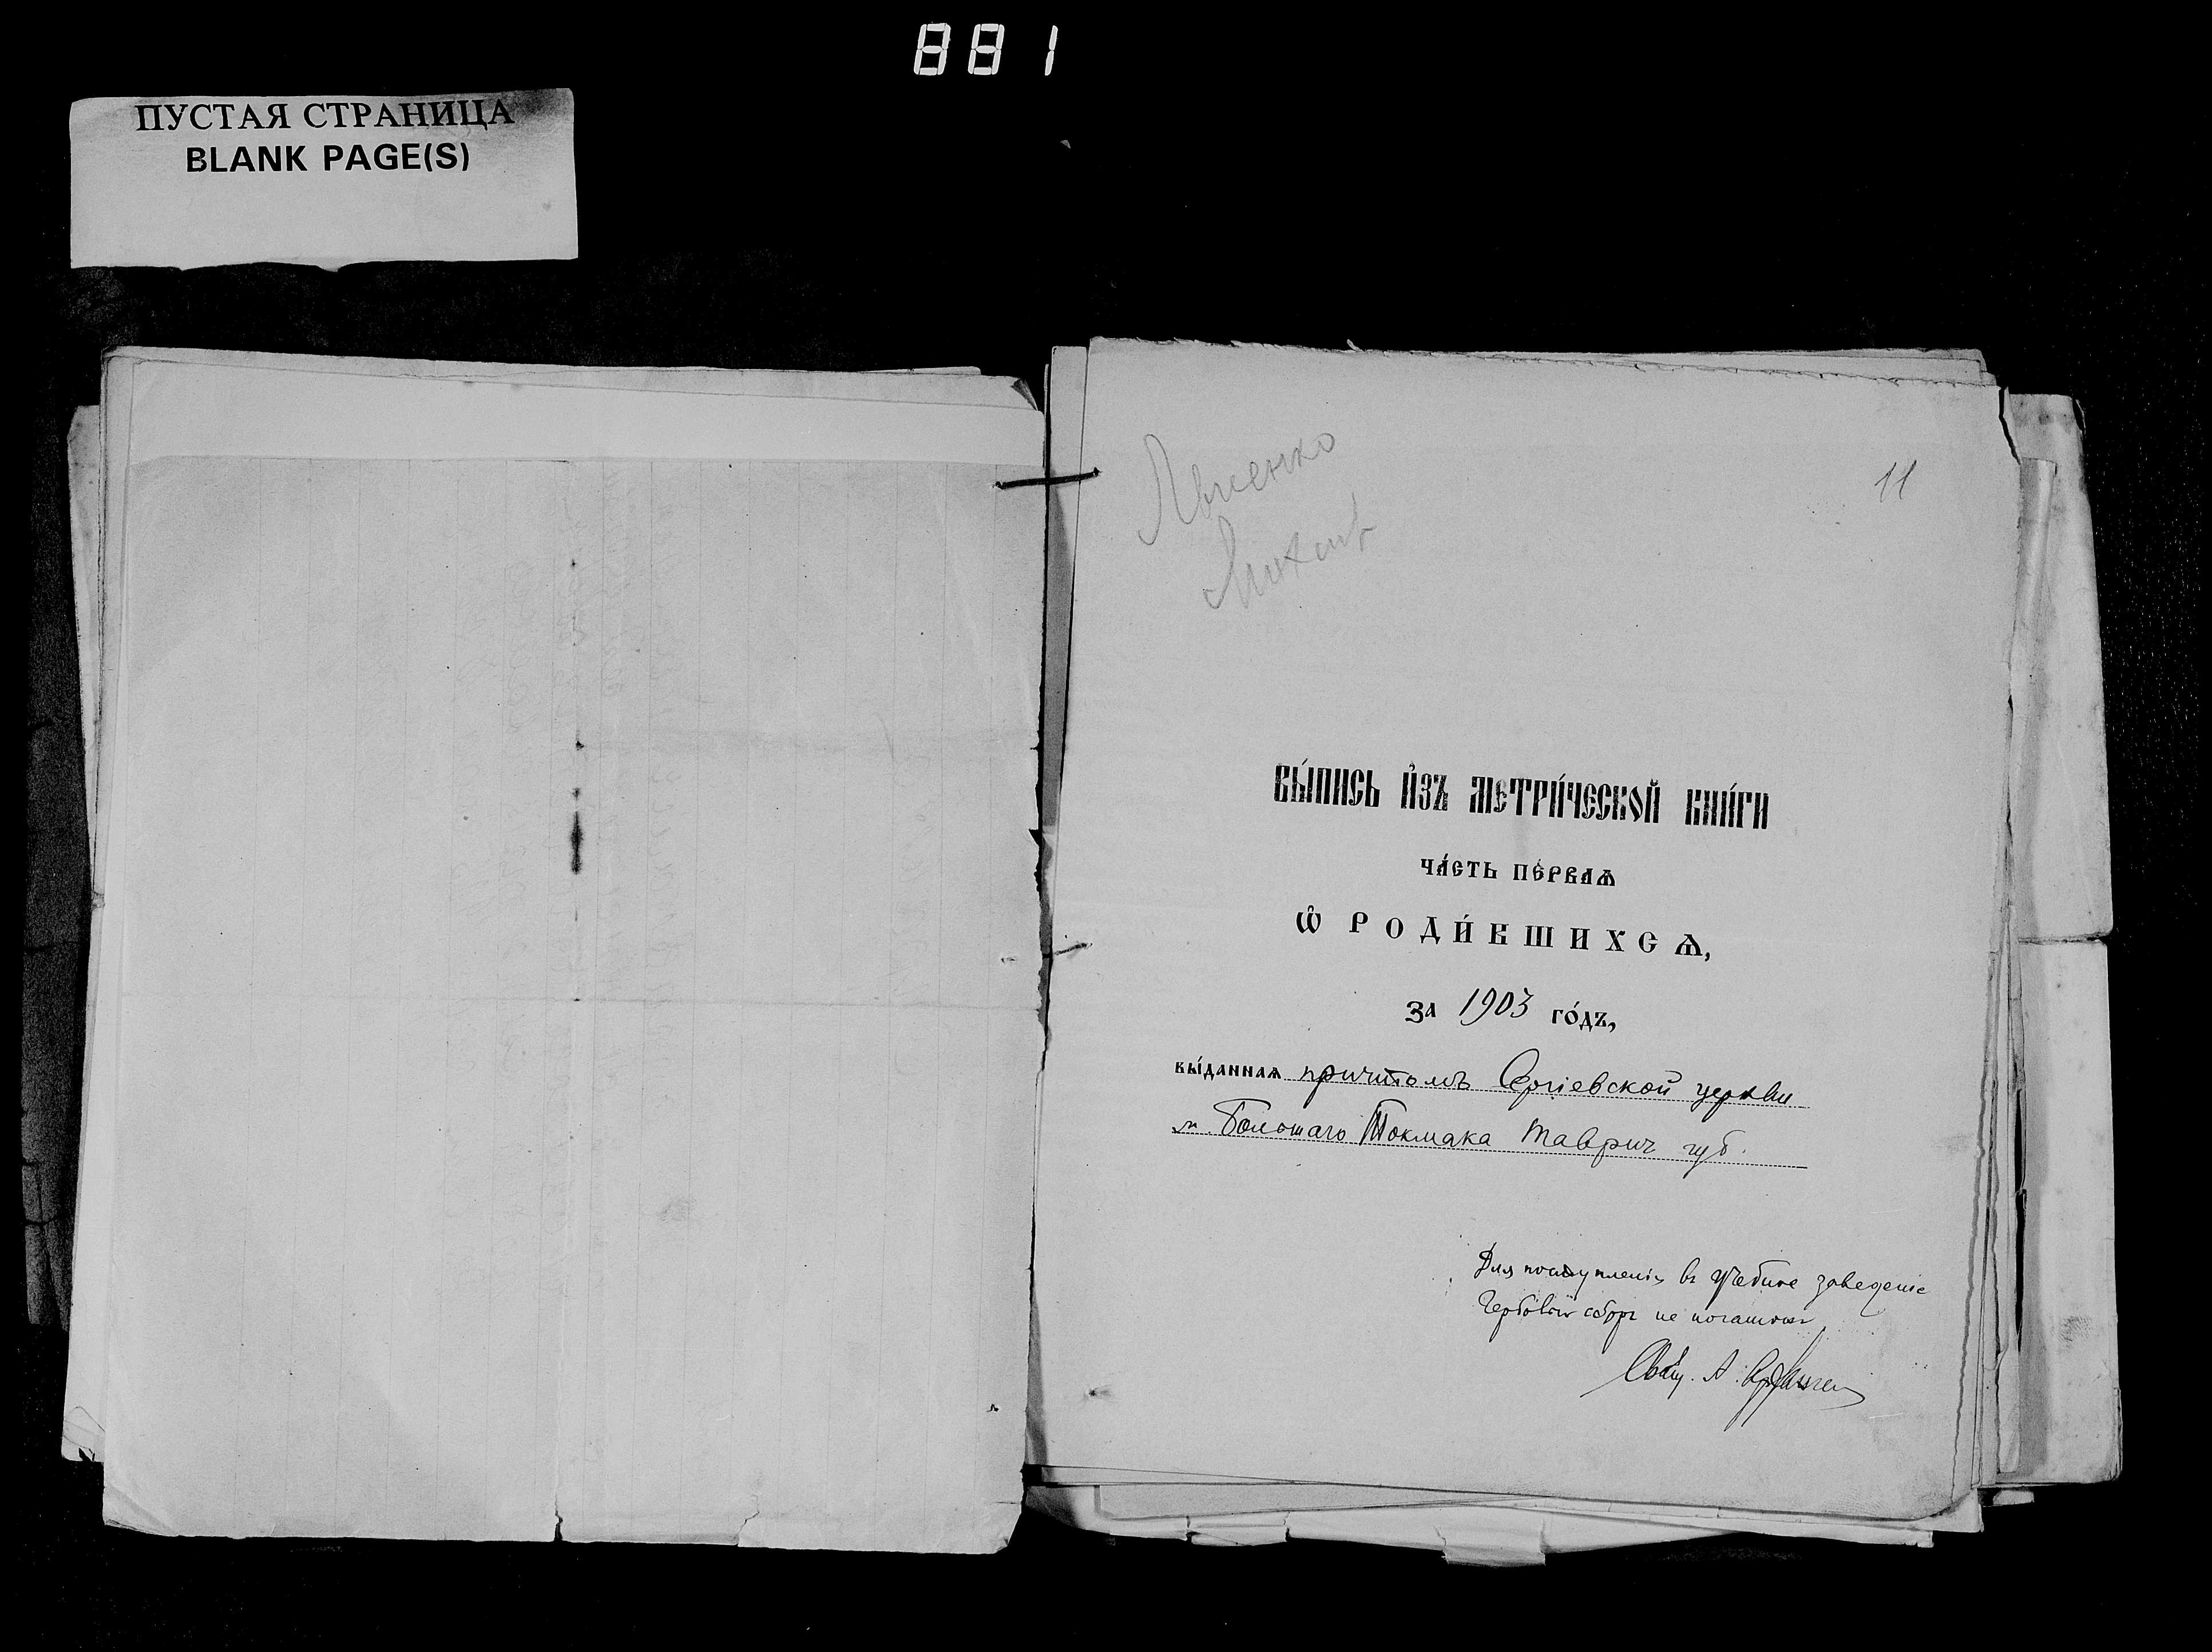 881
ПУСТАЯ СТРАНИЦА
BLANK PAGE(S)
11
ВЫ́ПИСЬ И҆ЗЪ МЕТРИ́ЧЕСКОЙ КНИ́ГИ
ЧА́СТЬ ПЕ́РВАѦ
Ѡ҆ РОДИ́ВШИХСѦ,
за 1903 го́дъ,
вы́даннаѧ причтомъ Сергіевской церкви
м. Большаго Токмака Таврич губ.
Для поступленія въ Учебное заведеніе
Гербовый сборъ не
Свящ. А.